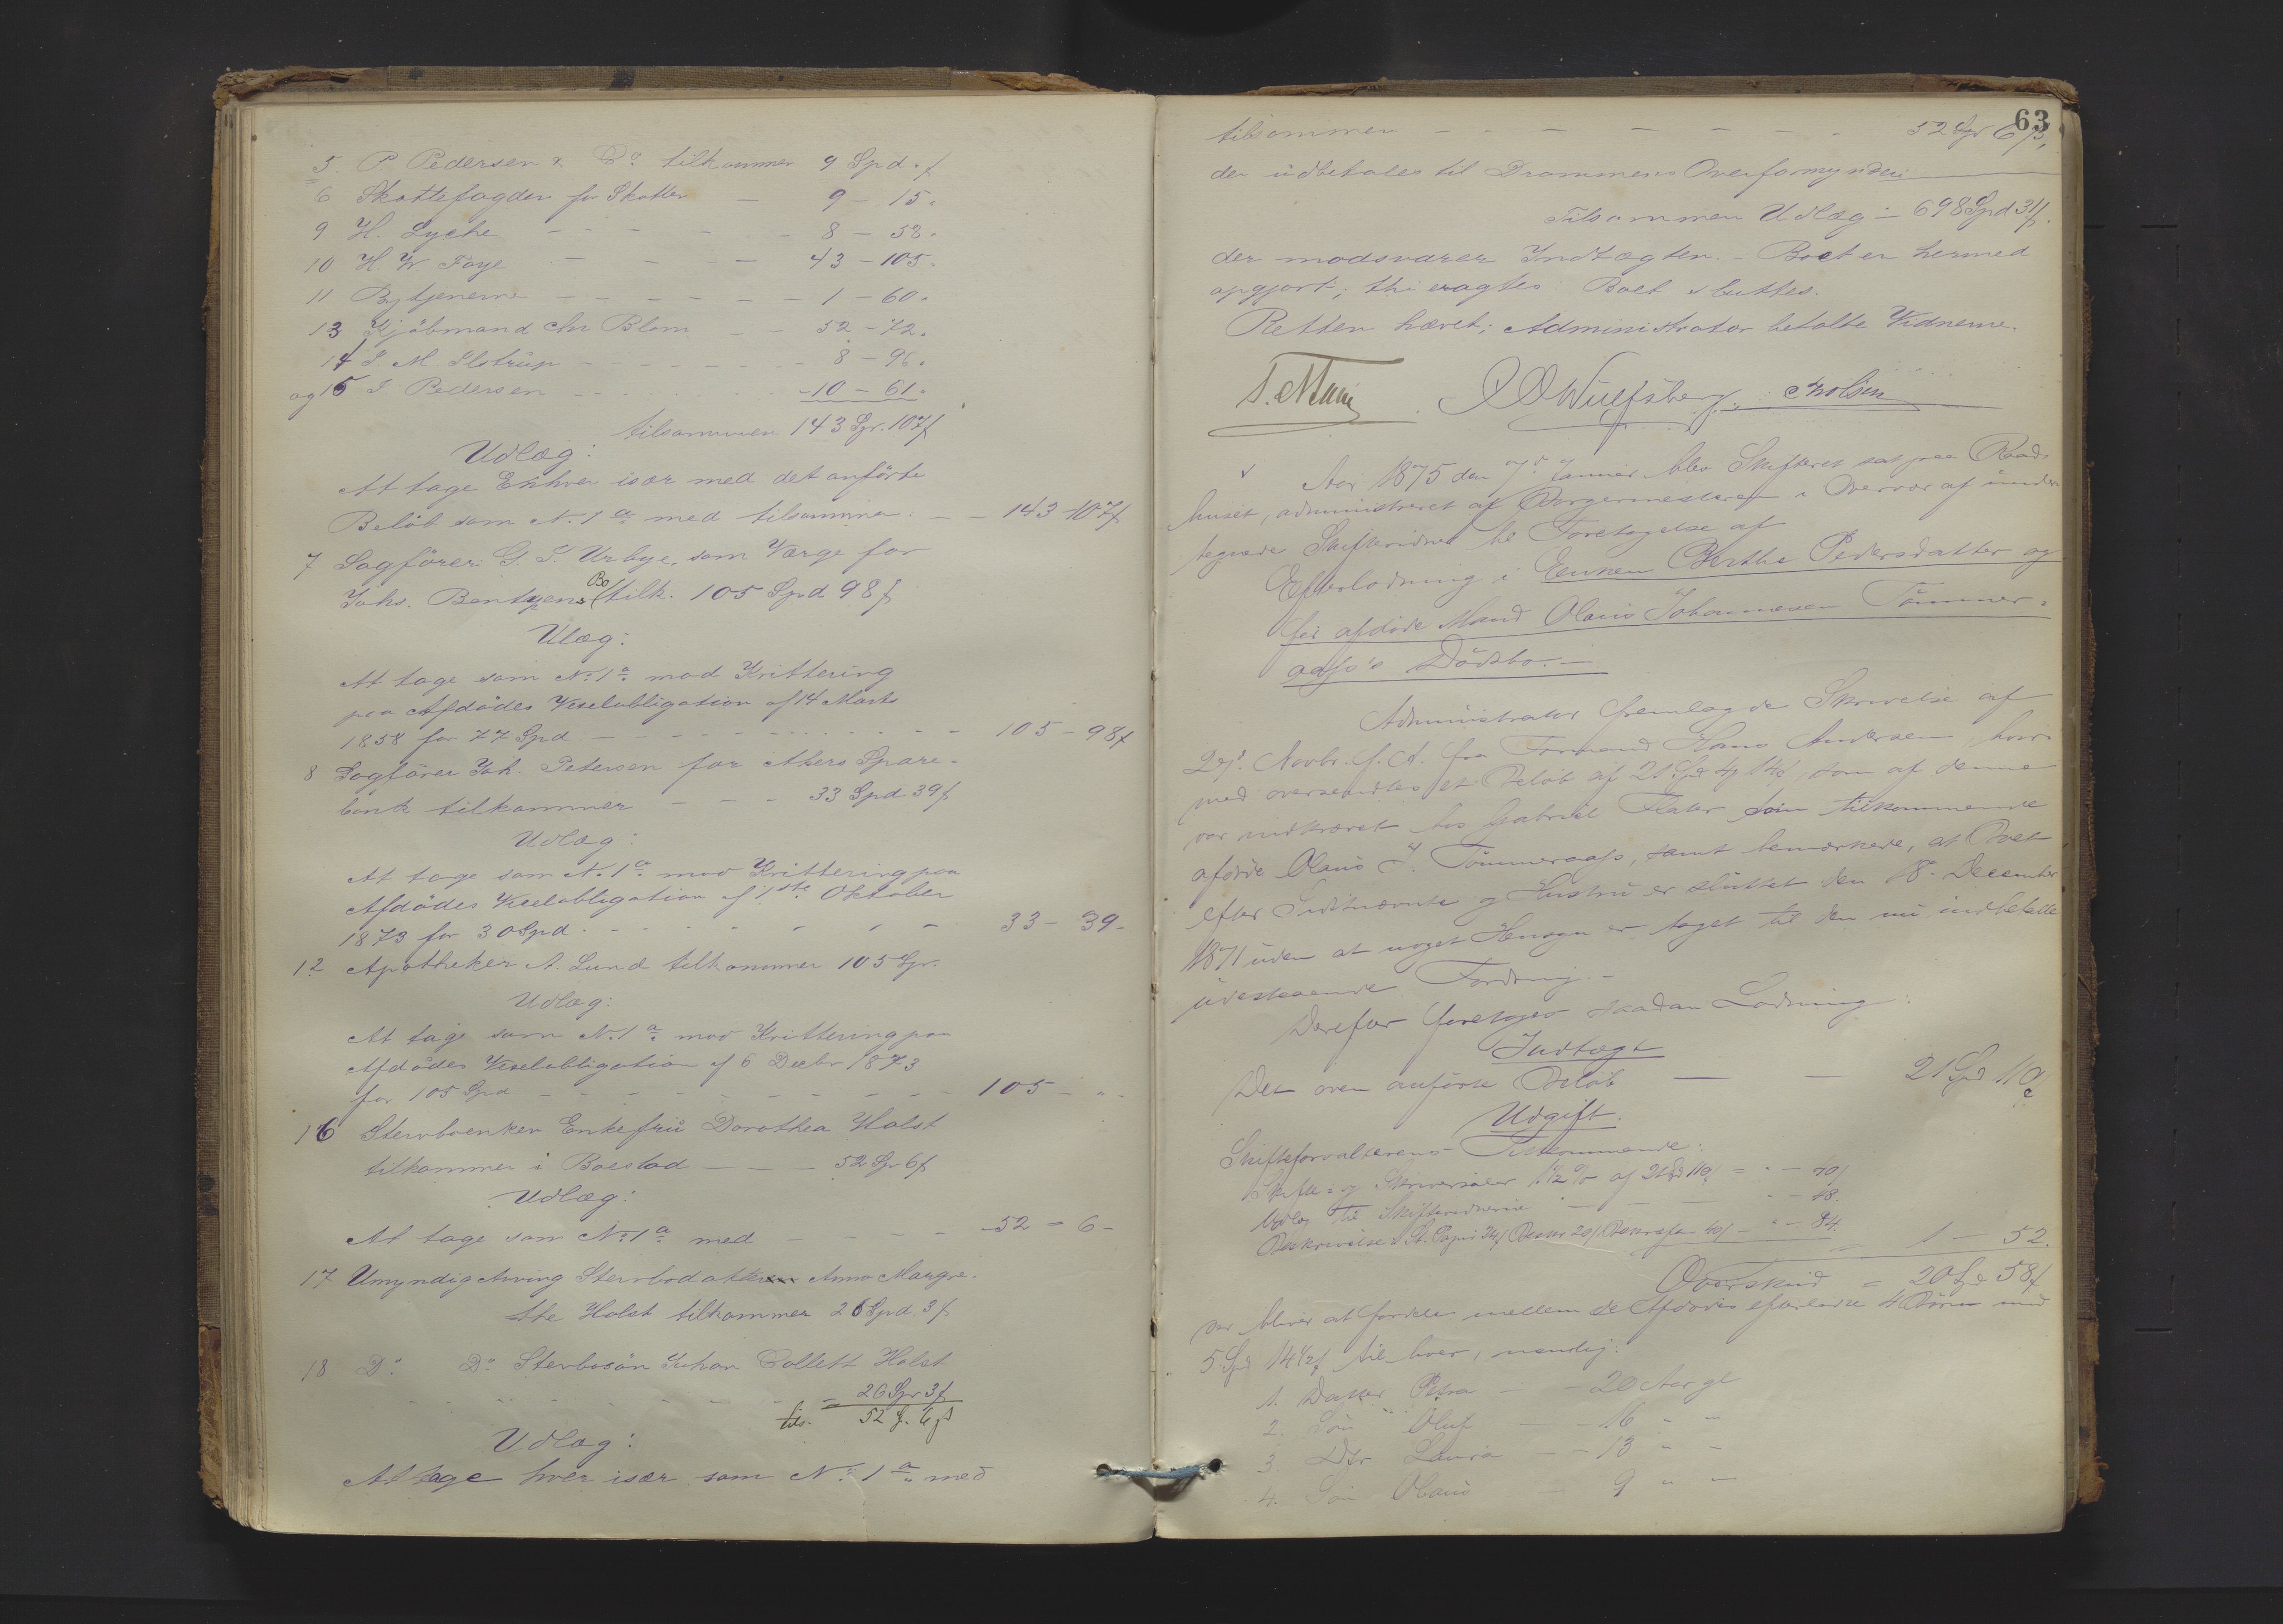 5. P Pedersen & Co tilkommer 9 Spd. ſ
6 Skattefogden for Skatter — 9 — 15.
9 H. Lyche - - - - - 8 — 58.
10 H. W Foye — - - - — 43 — 105.
11 Bytjenerne - - - - - - 1 — 60.
13 Kjöbmand Chr Blom - - 52 — 72.
14 S. M. Slotrup - - - - - - 8 — 96.
og 15 I Pedersen - - - - - - 10 — 61.
tilsammen 143 Spr. 107ſ
Udlæg:
At tage Enhver især med det anförte
Belöb som No. 1 a med tilsammen. - - 143-107ſ
7 Sagförer G. T. Urbye, som Værge for
Johs. Bentzens Bo tilk. 105 Spd 98ſ
Ulæg:
At tage som No. 1 a mod Kvittering
paa Afdödes Vexelobligation af 14 Marts
1858 for 77 Spd - - - - - - - - - - 105 - 98ſ
8 Sagförer Joh. Petersen for Akers Spare-
bank tilkommer - - - 33 Spd 39ſ
Udlæg:
At tage som No. 1 a mod Kvittering paa
Afdödes Vexelobligation af 1ste Oktober
1873 for 30 Spd. - - - - - - - 33 - 39-
12 Apotheker A. Lund tilkommer 105 Spr.
Udlæg:
At tage som No. 1 a mod Kvittering paa
Afdödes Vexelobligation af 6 Decbr 1873
for 105 Spd - - - - - - - - - - 105 - " -
16 Stervboenken Enkefru Dorothea Holst
tilkommer i Boeslod - - - 52 Sp 6ſ
Udlæg:
At tage som No 1 a med - - - - - 52 - 6 -
17 Umyndig Arving Stervbodatter Anna Margre-
the Holst tilkommer 26 Spd 3ſ
18 Do Do Stervbosön Johan Collett Holst
- - - - - - - = 26 Spr 3ſ
tils. 52 S. 6 ſ
Udlæg:
At tage hver især som No 1 a med
63
tilsammen - - - - - - - 52 Spr 6ſ,
der udbetales til Drammens Overformynderi
Tilsammen Udlæg — 698 Spd 31ſ.
der modsvarer Indtægten. - Boet er hermed
opgjort; thi eragtes: Boet sluttes.
Retten hævet; Administrator betalte Vidnerne.
Wulfsberg. Olsen
Aar 1875 den 7d Januar blev Skifteret sat paa Raad-
huset, administreret af Borgermesteren i Overvær af under-
tegnede Skiftevidner til Foretagelse af
Efterlodning i Enken Berthe Pedersdatter og
før afdøde Mand Olaus Johannesen Tömmer-
aas's Dödsbo. -
Administrator fremlagde Skrivelse af
Novbr. f. A. fra Formand Hans Andersen, hvor-
med oversendtes et Belöb af 21 Spd 14ſ, som af denne
var indkrævet hos Gabriel som tilkommende
afdöde Olaus J. Tömmeraas, samt bemærkede, at Boet
efter Sidstnævnte og Hustru er sluttet den 18. December
1871 uden at noget Hensyn er taget til den nu indbetalte
udestaaende Fordring. -
Derefter foretages saadan Lodning:
Indtægt
Det oven anförte Belöb — — 21 Spd 110ſ
Udgift.
Skifteforvalterens Tilkommende:
Skifte- og Skriversalær 1½ % af 21 Spd 110ſ = " - 40ſ
Udlæg til Skiftevidnerne - - - - " - 48.
Beskrivelse: St. Papir 24ſ 20ſ 40ſ - " - 84.
1 — 52.
Overskud = 20 Spd 58ſ
der bliver at fordele mellem de Afdödes efterladte 4 Börn med
5 Spd 14½ſ til hver, nemlig:
1. Datter Petra - - 20 Aar gl
2. Sön Oluf — 16 " -
3. Dtr Laura - - 13 " -
4. Sön Olaus — 9 " -